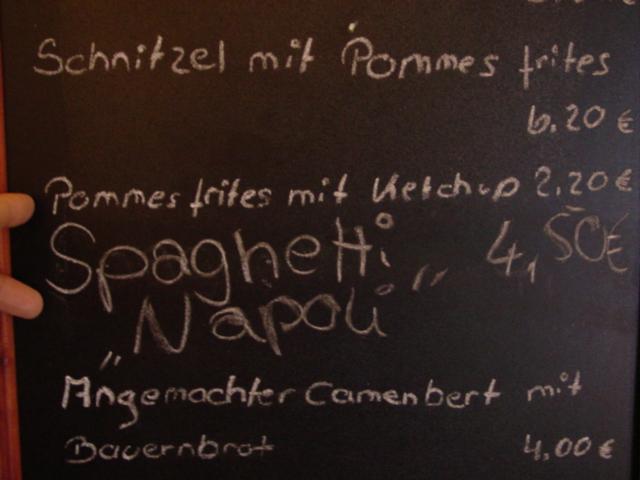 Schnitzel mit Pommes frites
6.20 €
Pommes frites mit Ketchup 2,20 €
Spaghetti 4,50€
"Napoli"
Angemachter Camenbert mit
Bauernbrot 4,00 €